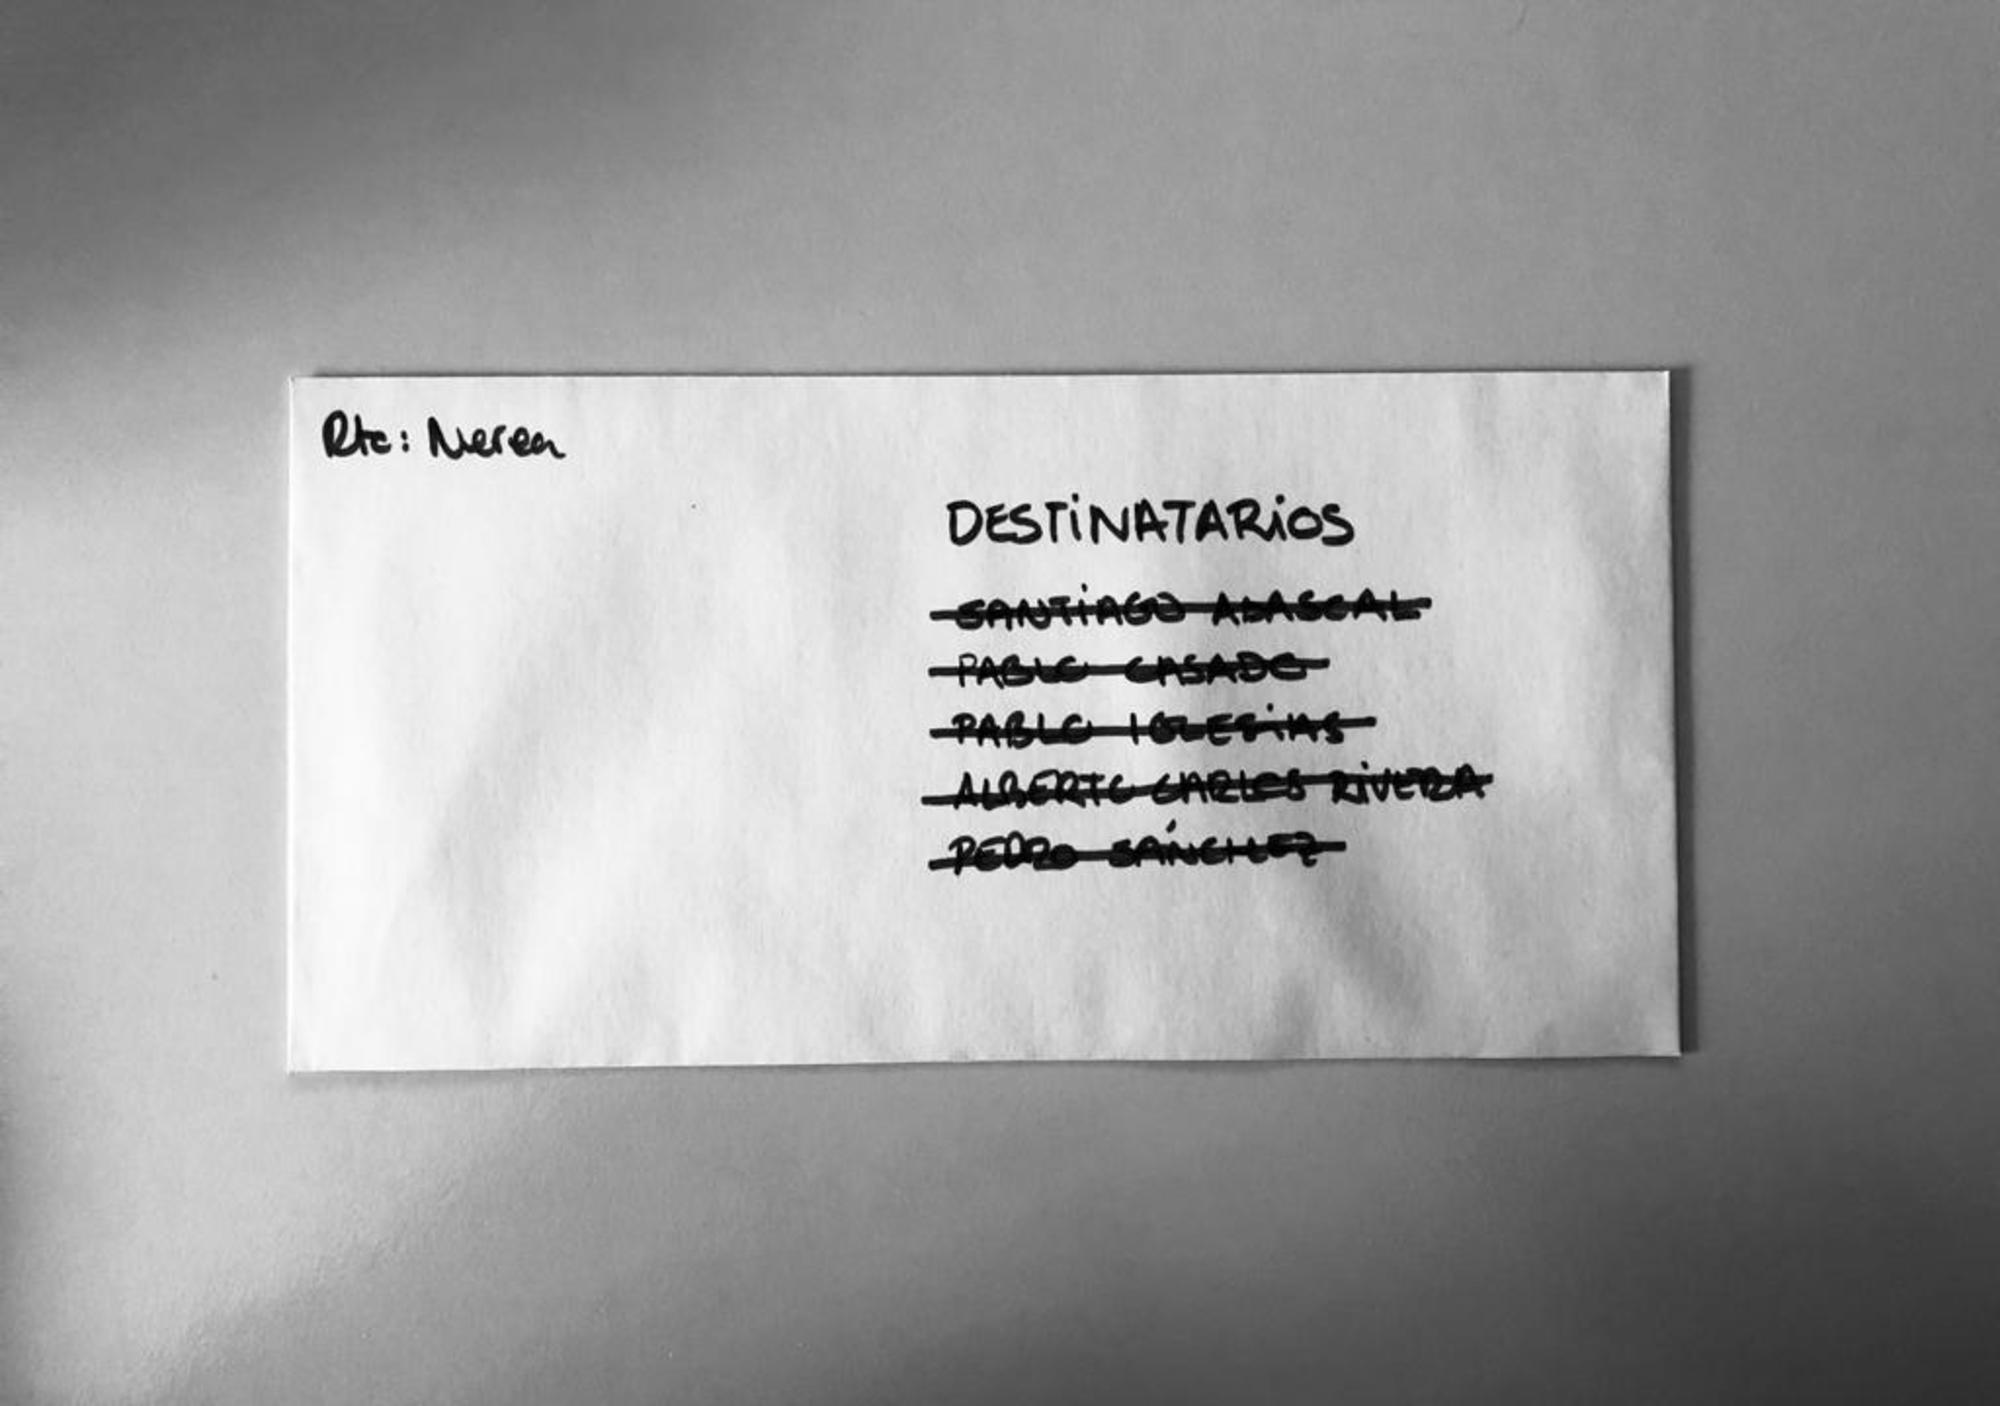 Rte: Nerea
DESTiNATARiOS
SANTiAGO ABASCAL
PABLO CASADO
PABLO IGLESiAS
ALBERTO CARLOS RiVERA
PEDRO SÁNCHEZ